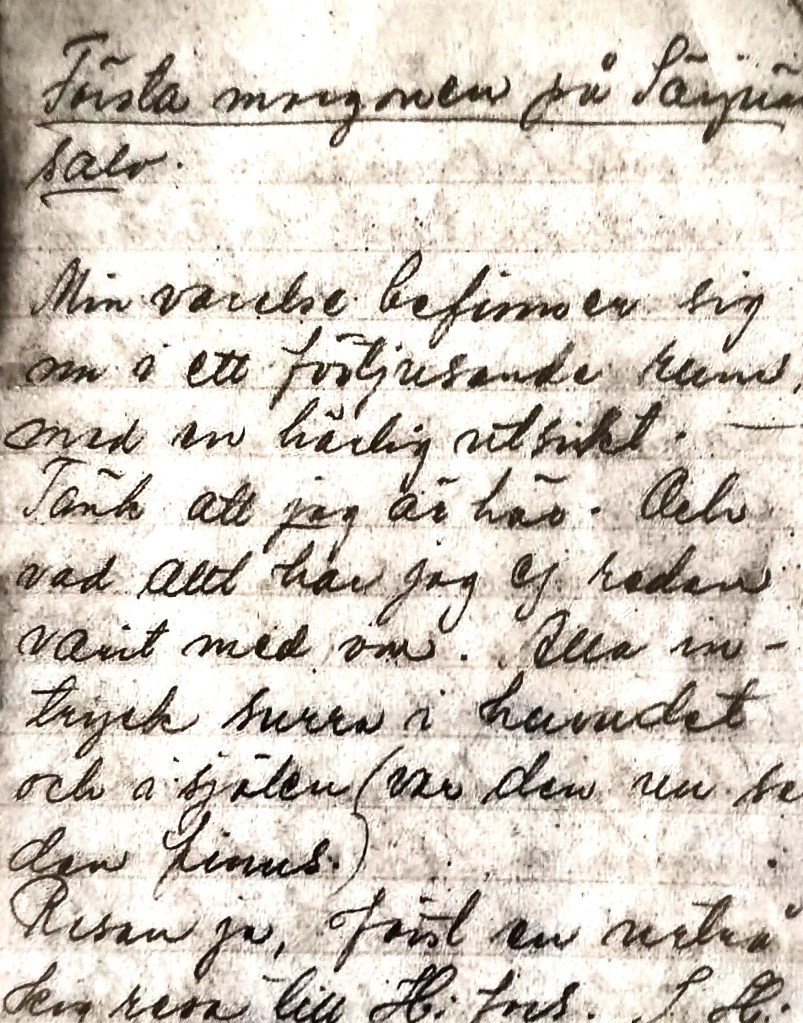 Första morgonen på Särpnä
salo.
Min varelse befinner sig
nu i ett förtjusande rum,
med en härlig utsikt.
Tänk att jag är här. Och
vad allt har jag ej redan
varit med om. Alla in-
tryck surra i huvudet
och i själen (var den nu se
dan finns.)
Resan ja, först en urtrå
kig resa till H:fors. I H: